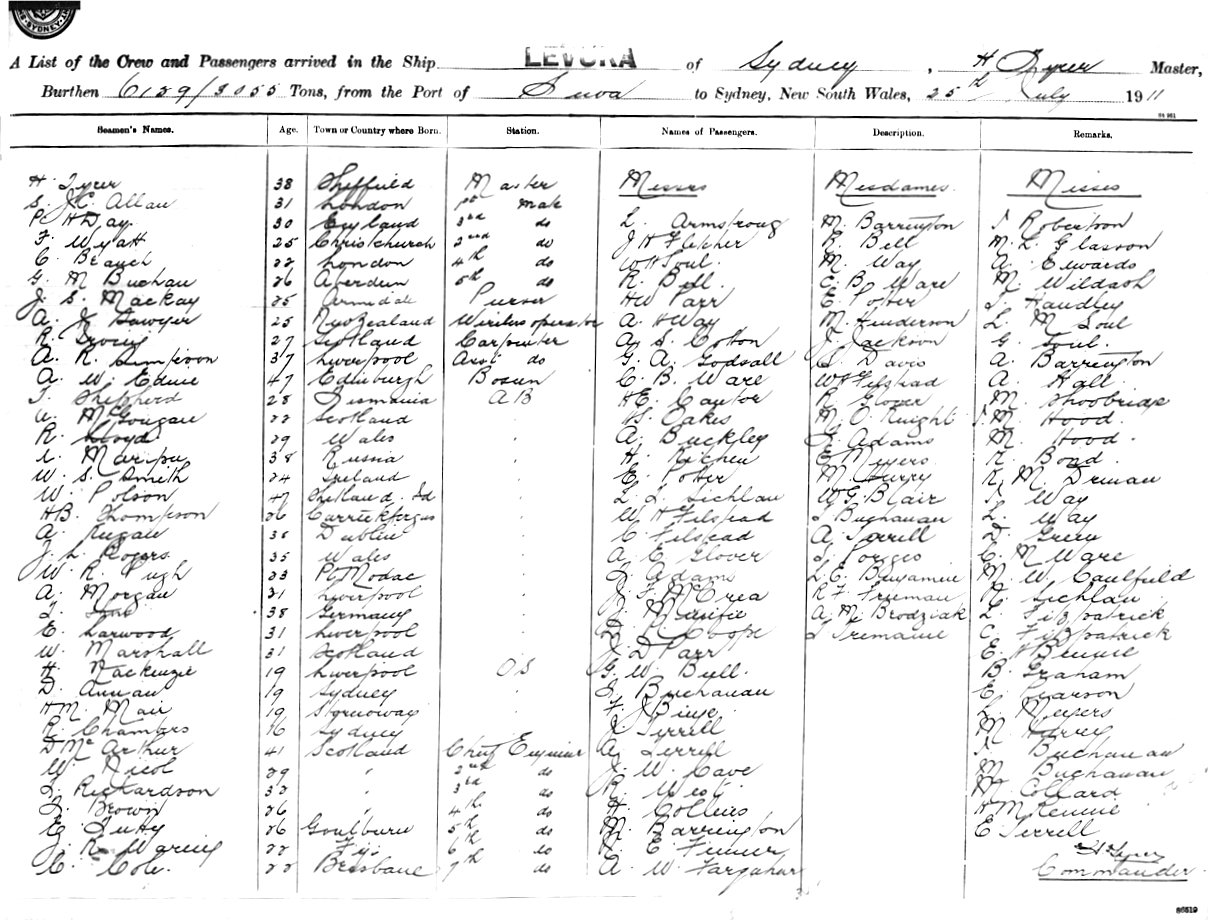 SYDNEY
A List of the Crew and Passengers arrived in the Ship LEVUKA of Sydney, H Tyrer Master,
Burthen 6129/3055 Tons, from the Port of Suva to Sydney, New South Wales, 25th July 1911
Seamen's Names. Age. Town or Country where Born. Station. Names of Passengers. Description. Remarks.
H. Tyrer 38 Sheffield Master Messrs Mesdames Misses
S. J.C. Allan 31 London 1st Mate
P. H Day 30 England do L. Armstrong M. Barrington Robertson
F. Wyatt 25 Christchurch 2nd do J H Fletcher R. Bell M. L. Glasson
C. Branch 22 London 4th do W H Soul. M. Way A. Edwards
G. M Buchan 26 Aberdeen 5th do R. Bell. C. B. Ware M. Wildash
J. S. Mackay 25 Armidale Purser HW Parr E. Potter Handley
A. Sawyer 25 New Zealand Wireless operator A. H Way M. Henderson L. M Soul
R. 27 Scotland Carpenter A. S. Cotton J. Jackson G. Soul.
A. R. Simpson 37 Liverpool Asst do G. A. Godsall Davis A. Barrington
A. W. 47 Edinburgh Bosun C. B. Ware A. Hall
Shepherd 28 Tasmania AB H E. Cantor R. Glover M. Shoobridge
McGougan 22 Scotland Oakes M. O. Knight M. Hood
R. Lloyd 29 Wales A. Buckley Adams M. Hood.
38 Russia H. E. Meyers K. Bond
W. S. Smith 24 Ireland E. Potter M. R. M.
W. Polson 47 Shetland. Isd W G. Blair Way
HB. Thompson 26 Carrickfergus W H Filstead Buchanan L. Way
A. Dublin C. Filstead A. Terrill D.
J. L. Rogers 35 Wales A. E. Glover Porges C. M Ware
W. R. Pugh 23 Pt Modac Adams L. E. Benjamin M. W. Caulfield
A. Morgan 21 Liverpool J. F. McCrea R F Freeman
38 Germany A. M Brodziak L. Fitzpatrick
E. Larwood 31 Liverpool Tremaine C. Fitzpatrick
W. Marshall 31 Scotland D Parr E. H
H. Mackenzie 19 Liverpool OS G. W Bull. B. Graham
D. Annan 19 Sydney Buchanan E. Pearson
HM. Mair 19 Stornoway L. Meyers
R. Chambers 16 Sydney Terrell M. Harvey
D Mc Arthur 41 Scotland Chief Engineer A. Terrell Buchanan
W. Nicol 29 " 2nd do W. Cave M. Buchanan
J. Richardson 32 " 3rd do R. West. M. Collard
J. Brown 26 " 4th do H. Collins H M Rennie
E. 26 Goulburn 5th do M. Barrington E Terrell
J. R. Waring 22 Fiji 6th do E. H Tyrer
C. Cole. 22 Brisbane 7th do A. W. Farquhar Commander.
86519